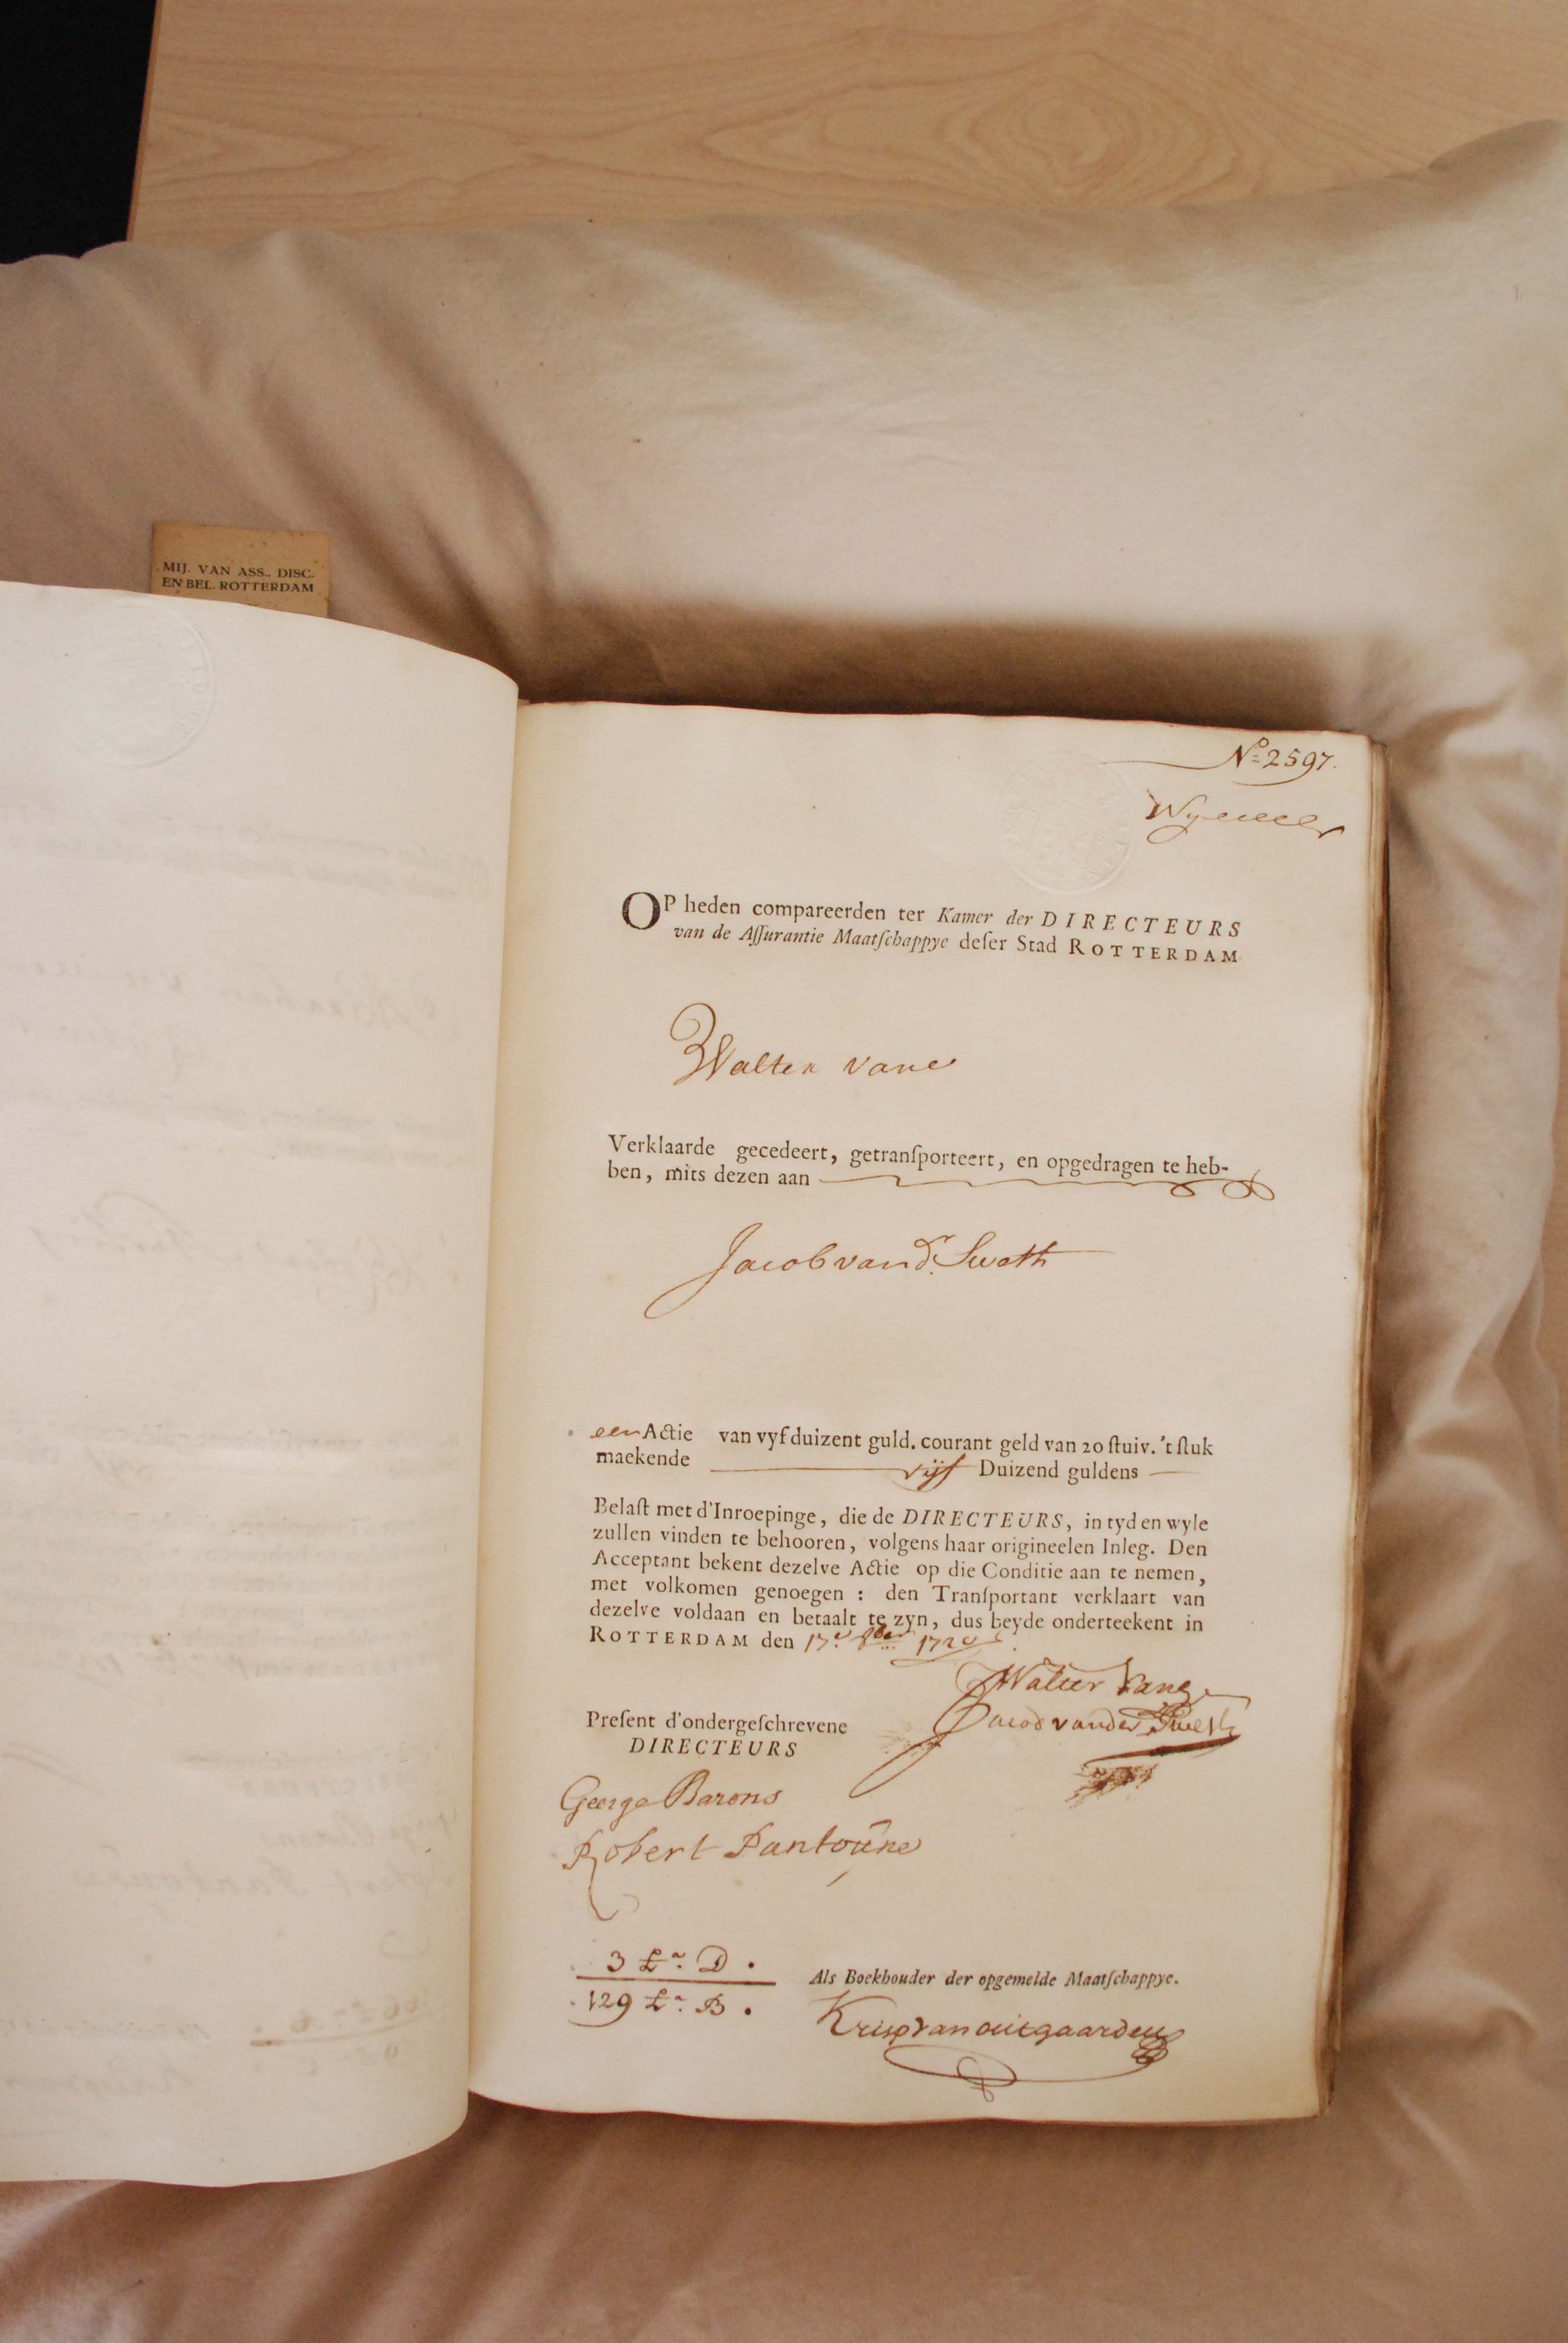 MIJ. VAN ASS., DISC.
EN BEL. ROTTERDAM
No 2597.
OP heden compareerden ter Kamer der DIRECTEURS
van de Aſſurantie Maatſchappye deſer Stad ROTTERDAM
Walter vane
Verklaarde gecedeert, getranſporteert, en opgedragen te heb-
ben, mits dezen aan
Jacob vandr Sweth
een Actie van vyfduizent guld. courant geld van 20 ſtuiv. 't ſtuk
maekende vijf Duizend guldens
Belaſt met d'Inroepinge, die de DIRECTEURS, in tyd en wyle
zullen vinden te behooren, volgens haar origineelen Inleg. Den
Acceptant bekent dezelve Actie op die Conditie aan te nemen,
met volkomen genoegen : den Tranſportant verklaart van
dezelve voldaan en betaalt te zyn, dus beyde onderteekent in
ROTTERDAM den 17e 8ber 1720
Walter Vane
Jacob vander Sweth
Preſent d'ondergeſchrevene
DIRECTEURS
George Barons
Robert Pantoune
3 Lra D.
129 Lra B.
Als Boekhouder der opgemelde Maatſchappye.
Krisp van outgaarden